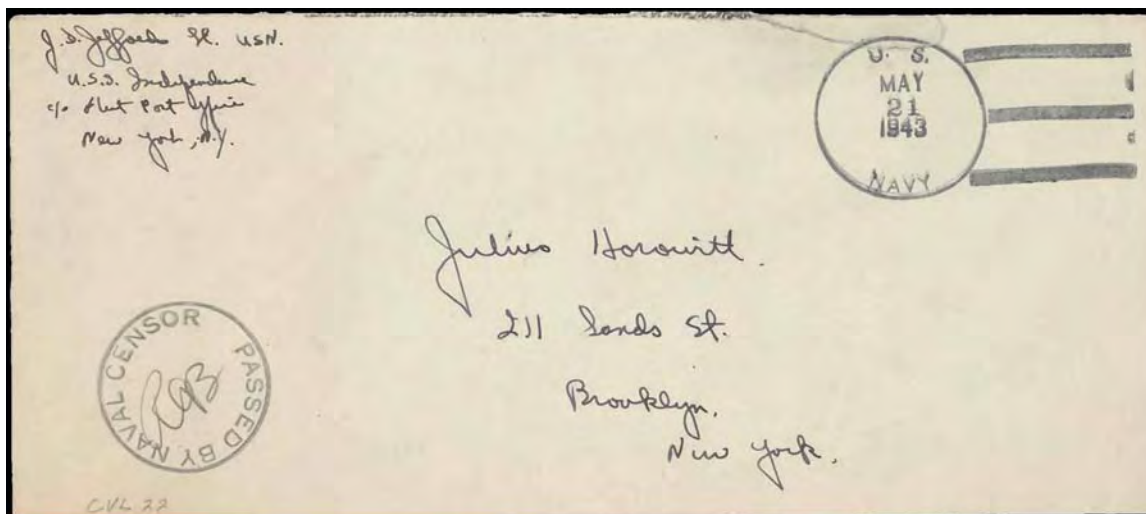 J.D. Jeffords SK. USN.
U.S.S. Independence
c/o Fleet Post Office
New York, N.Y.
U. S.
MAY
21
1943
NAVY
Julius Horowitt.
211 Sands St.
Brooklyn.
New York.
PASSED BY NAVAL CENSOR
CVL 22